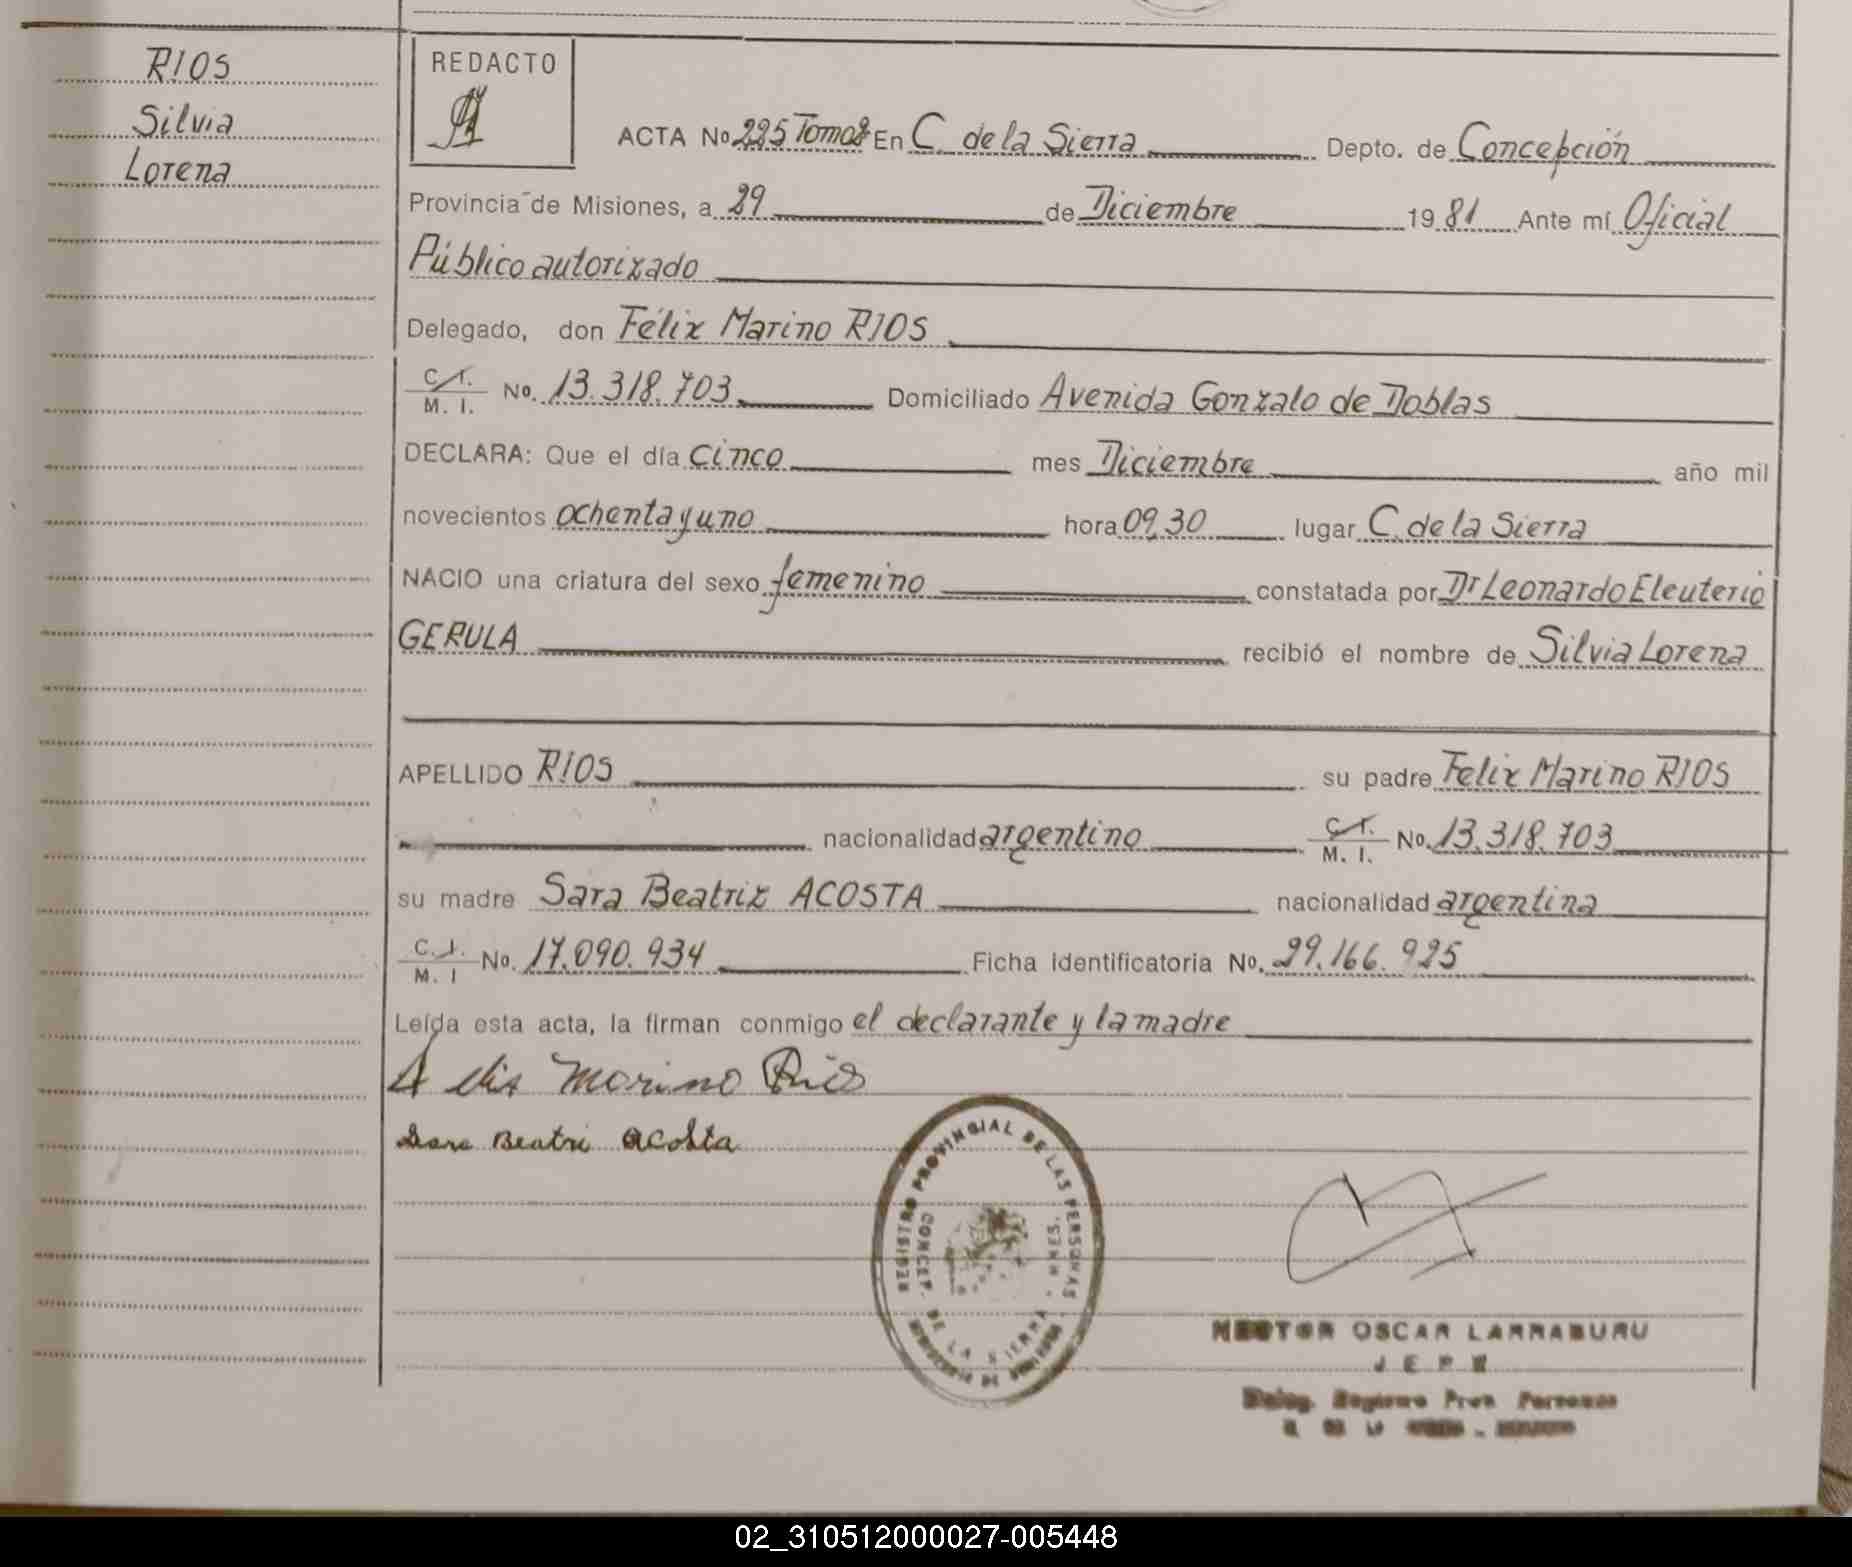 RIOS
Silvia
Lorena
REDACTO
ACTA No 225 Tomo 2 En C. de la Sierra Depto. de Concepción
Provincia de Misiones, a 29 de Diciembre 1981 Ante mí Oficial
Público autorizado
Delegado, don Félix Marino RIOS
C. I. / M. I. No. 13.318.703 Domiciliado Avenida Gonzalo de Doblas
DECLARA: Que el día cinco mes Diciembre año mil
novecientos ochenta y uno hora 09,30 lugar C. de la Sierra
NACIO una criatura del sexo femenino constatada por Dr Leonardo Eleuterio
GERULA recibió el nombre de Silvia Lorena
APELLIDO RIOS su padre Felix Marino RIOS
nacionalidad argentino C. I. / M. I. No. 13.318.703
su madre Sara Beatriz ACOSTA nacionalidad argentina
C. I. / M. I No. 17.090.934 Ficha identificatoria No. 29.166.925
Leída esta acta, la firman conmigo el declarante y la madre
Marino Rios
Sara Beatri acosta
REGISTRO PROVINCIAL DE LAS PERSONAS
CONCEP. DE LA SIERRA - MNES.
MINISTERIO DE GOBIERNO
HECTOR OSCAR LARRABURU
JEFE
Deleg. Registro Prov. Personas
C. DE LA SIERRA - MISIONES
02_310512000027-005448